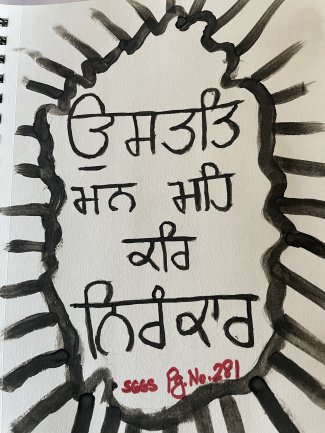 ਉਸਤਤਿ
ਮਨ ਮਹਿ
ਕਰਿ
ਨਿਰੰਕਾਰ
SGGS Pg.No.281